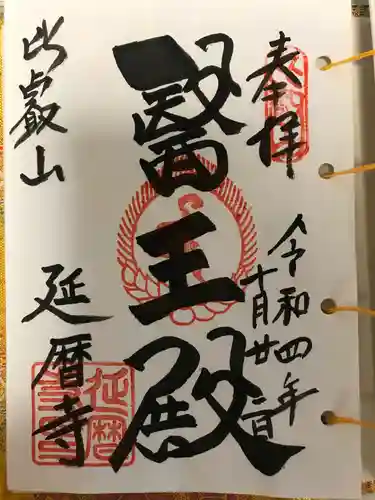 奉拝
令和四年
十月廿二日
醫王殿
比叡山
延暦寺